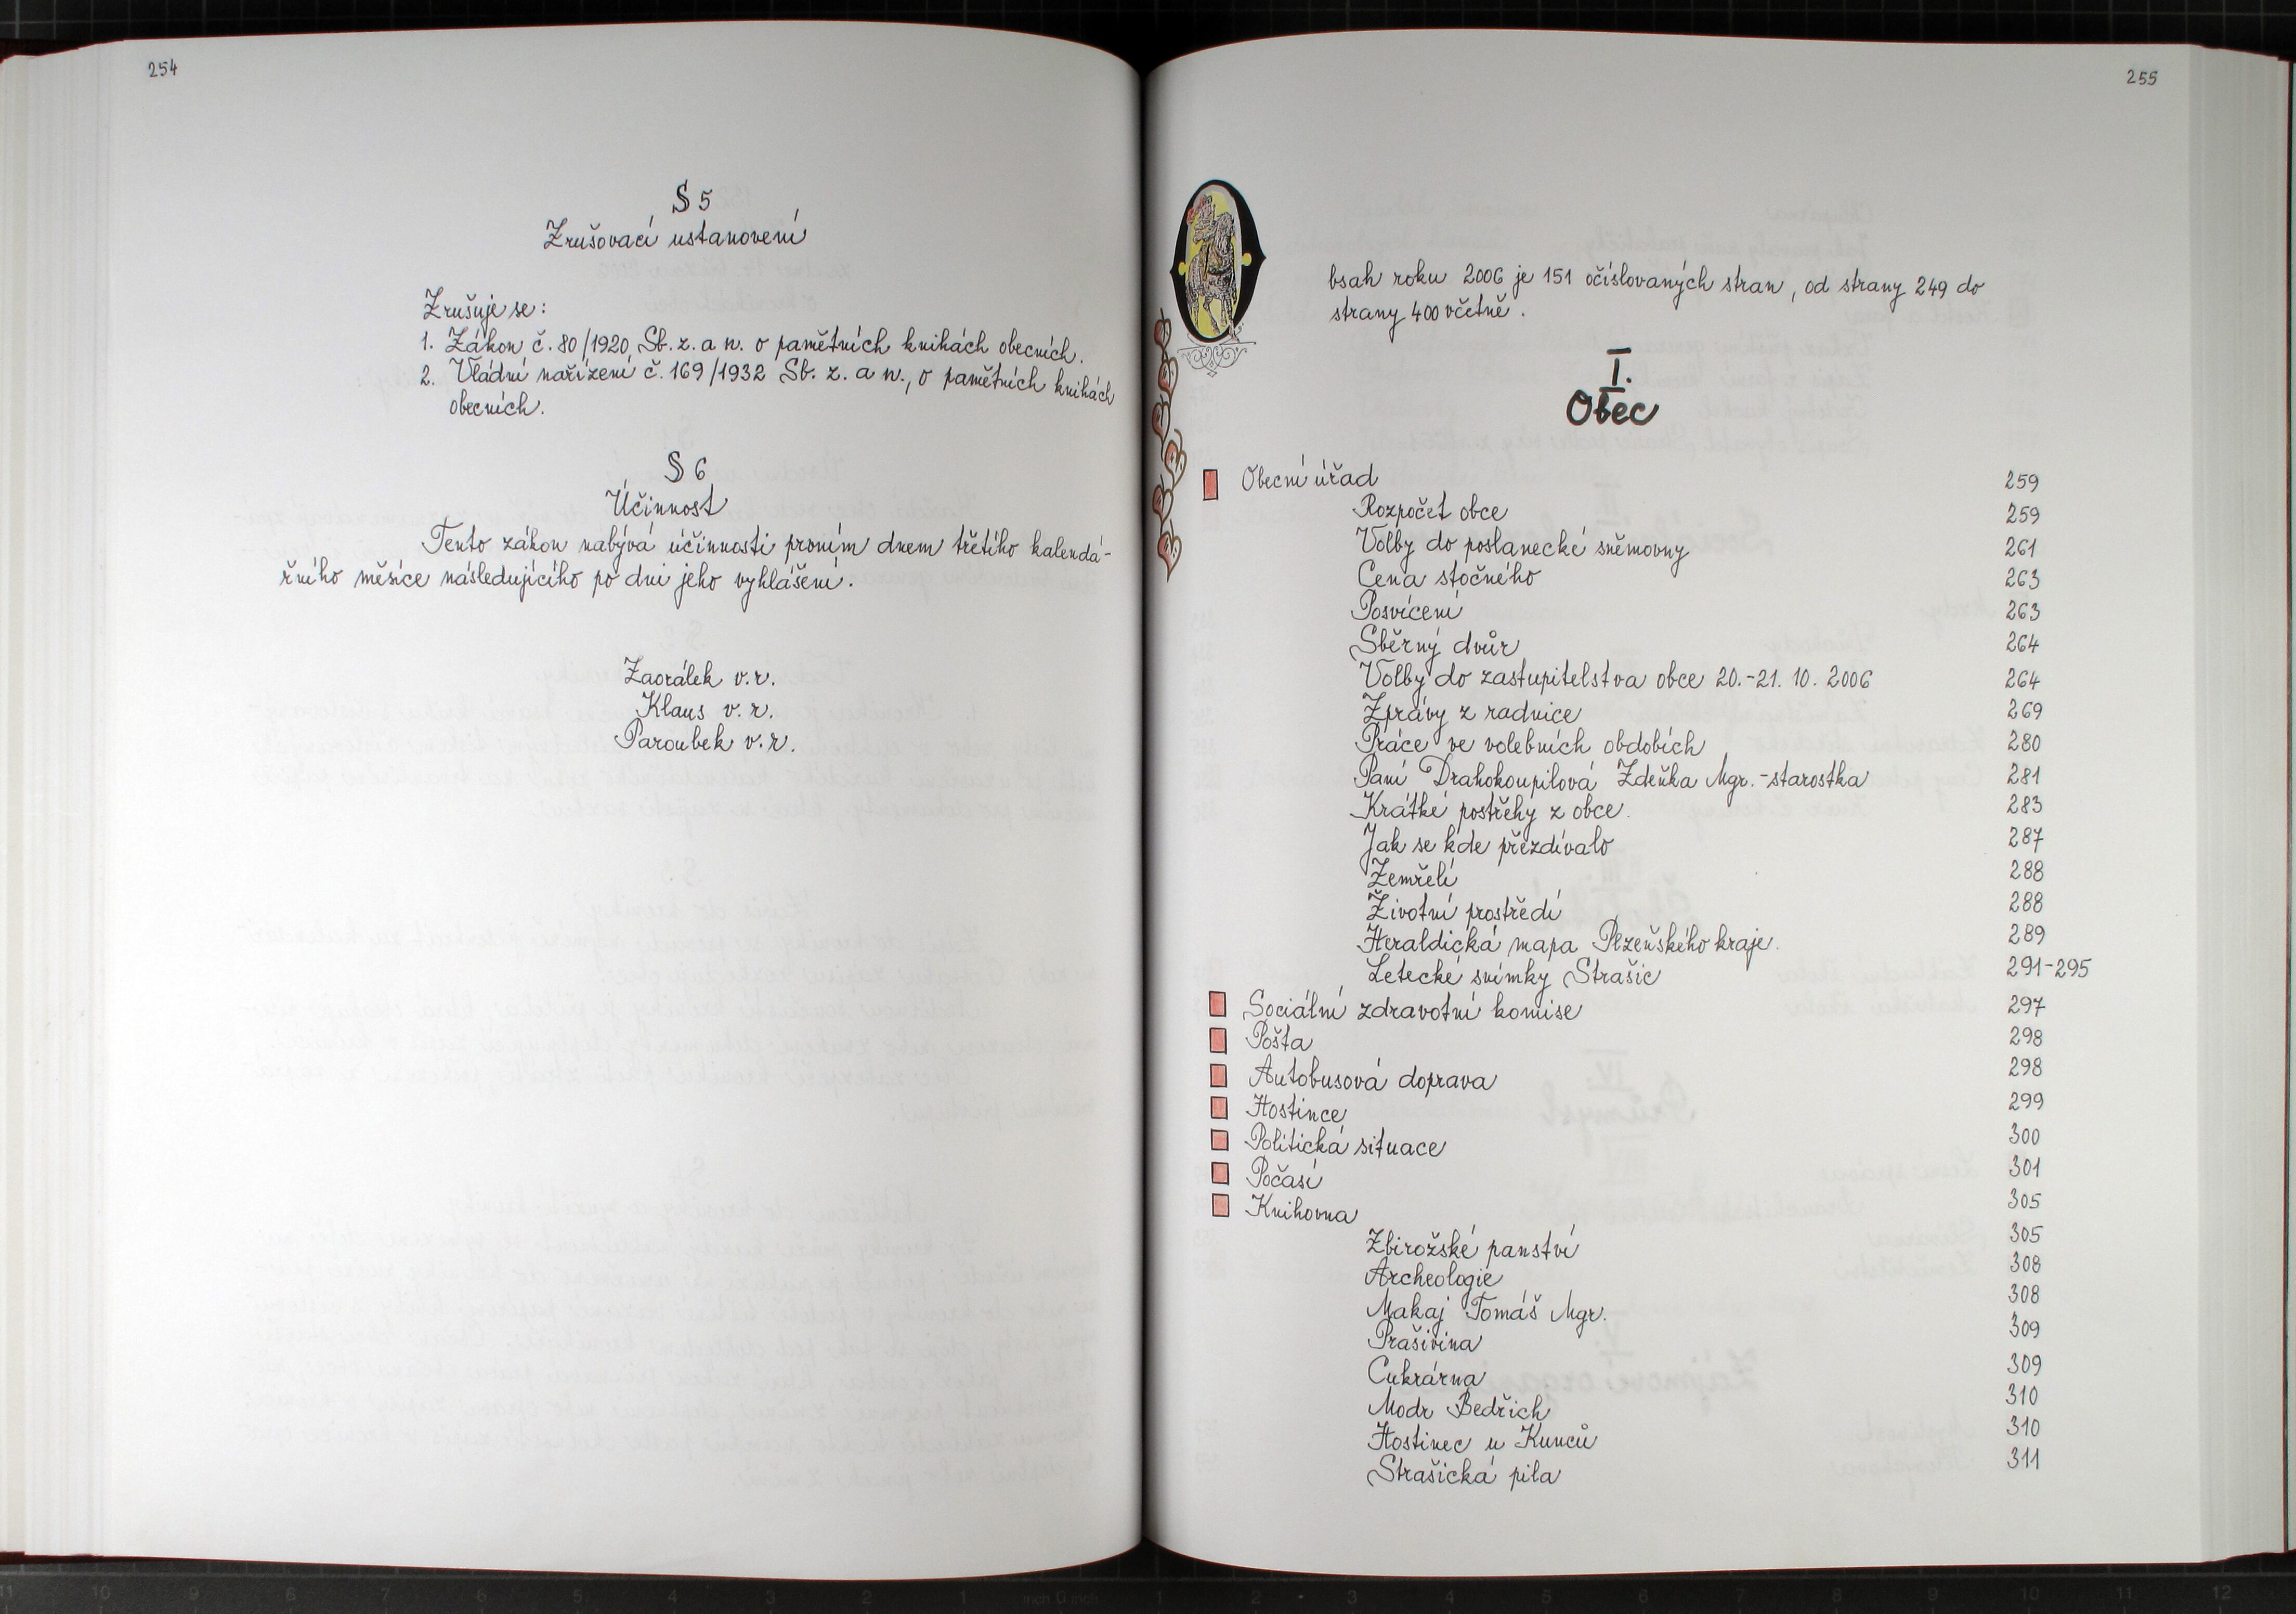 254
§ 5
Zrušovací ustanovení
Zrušuje se:
1. Zákon č. 80/1920 Sb. z. a n. o pamětních knihách obecních.
2. Vládní nařízení č. 169/1932 Sb. z. a n., o pamětních knihách
obecních.
§ 6
Účinnost
Tento zákon nabývá účinnosti prvním dnem třetího kalendá-
řního měsíce následujícího po dni jeho vyhlášení.
Zaorálek v.r.
Klaus v.r.
Paroubek v.r.
255
Obsah roku 2006 je 151 očíslovaných stran, od strany 249 do
strany 400 včetně.
I.
Obec
Obecní úřad 259
Rozpočet obce 259
Volby do poslanecké sněmovny 261
Cena stočného 263
Posvícení 263
Sběrný dvůr 264
Volby do zastupitelstva obce 20.-21. 10. 2006 264
Zprávy z radnice 269
Práce ve volebních obdobích 280
Paní Drahokoupilová Zdeňka Mgr.-starostka 281
Krátké postřehy z obce. 283
Jak se kde přezdívalo 287
Zemřelí 288
Životní prostředí 288
Heraldická mapa Plzeňského kraje. 289
Letecké snímky Strašic 291-295
Sociální zdravotní komise 297
Pošta 298
Autobusová doprava 298
Hostince 299
Politická situace 300
Počasí 301
Knihovna 305
Zbirožské panství 305
Archeologie 308
Makaj Tomáš Mgr. 308
Prašivina 309
Cukrárna 309
Modr Bedřich 310
Hostinec u Kunců 310
Strašická pila 311